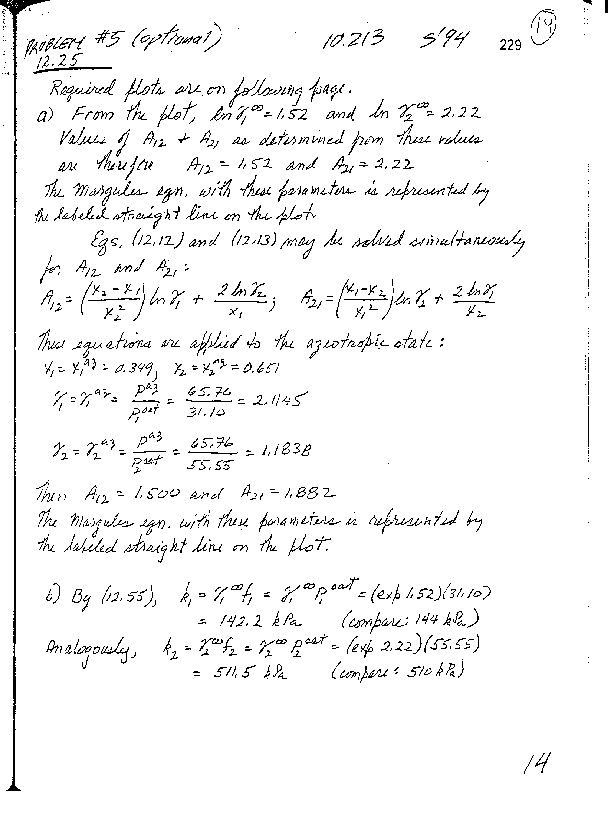 PROBLEM #5 (optional) 10.213 S'94 229 14
12.25
Required plots are on following page.
a) From the plot, ln γ₁^∞ = 1.52 and ln γ₂^∞ = 2.22
Values of A₁₂ + A₂₁ as determined from these values
are therefore A₁₂ = 1.52 and A₂₁ = 2.22
The Margules eqn. with these parameters is represented by
the labeled straight line on the plot.
Eqs. (12.12) and (12.13) may be solved simultaneously
for A₁₂ and A₂₁:
A₁₂ = ((x₂ - x₁)/x₂²) ln γ₁ + 2 ln γ₂/x₁ ; A₂₁ = ((x₁ - x₂)/x₁²) ln γ₂ + 2 ln γ₁/x₂
These equations are applied to the azeotropic state:
x₁ = x₁^az = 0.349, x₂ = x₂^az = 0.651
γ₁ = γ₁^az = P^az/P₁^sat = 65.76/31.10 = 2.1145
γ₂ = γ₂^az = P^az/P₂^sat = 65.76/55.55 = 1.1838
Then A₁₂ = 1.500 and A₂₁ = 1.882
The Margules eqn. with these parameters is represented by
the labeled straight line on the plot.
b) By (12.55), k₁ = γ₁^∞ f₁ = γ₁^∞ P₁^sat = (exp 1.52)(31.10)
= 142.2 kPa (compare: 144 kPa)
Analogously, k₂ = γ₂^∞ f₂ = γ₂^∞ P₂^sat = (exp 2.22)(55.55)
= 511.5 kPa (compare: 510 kPa)
14